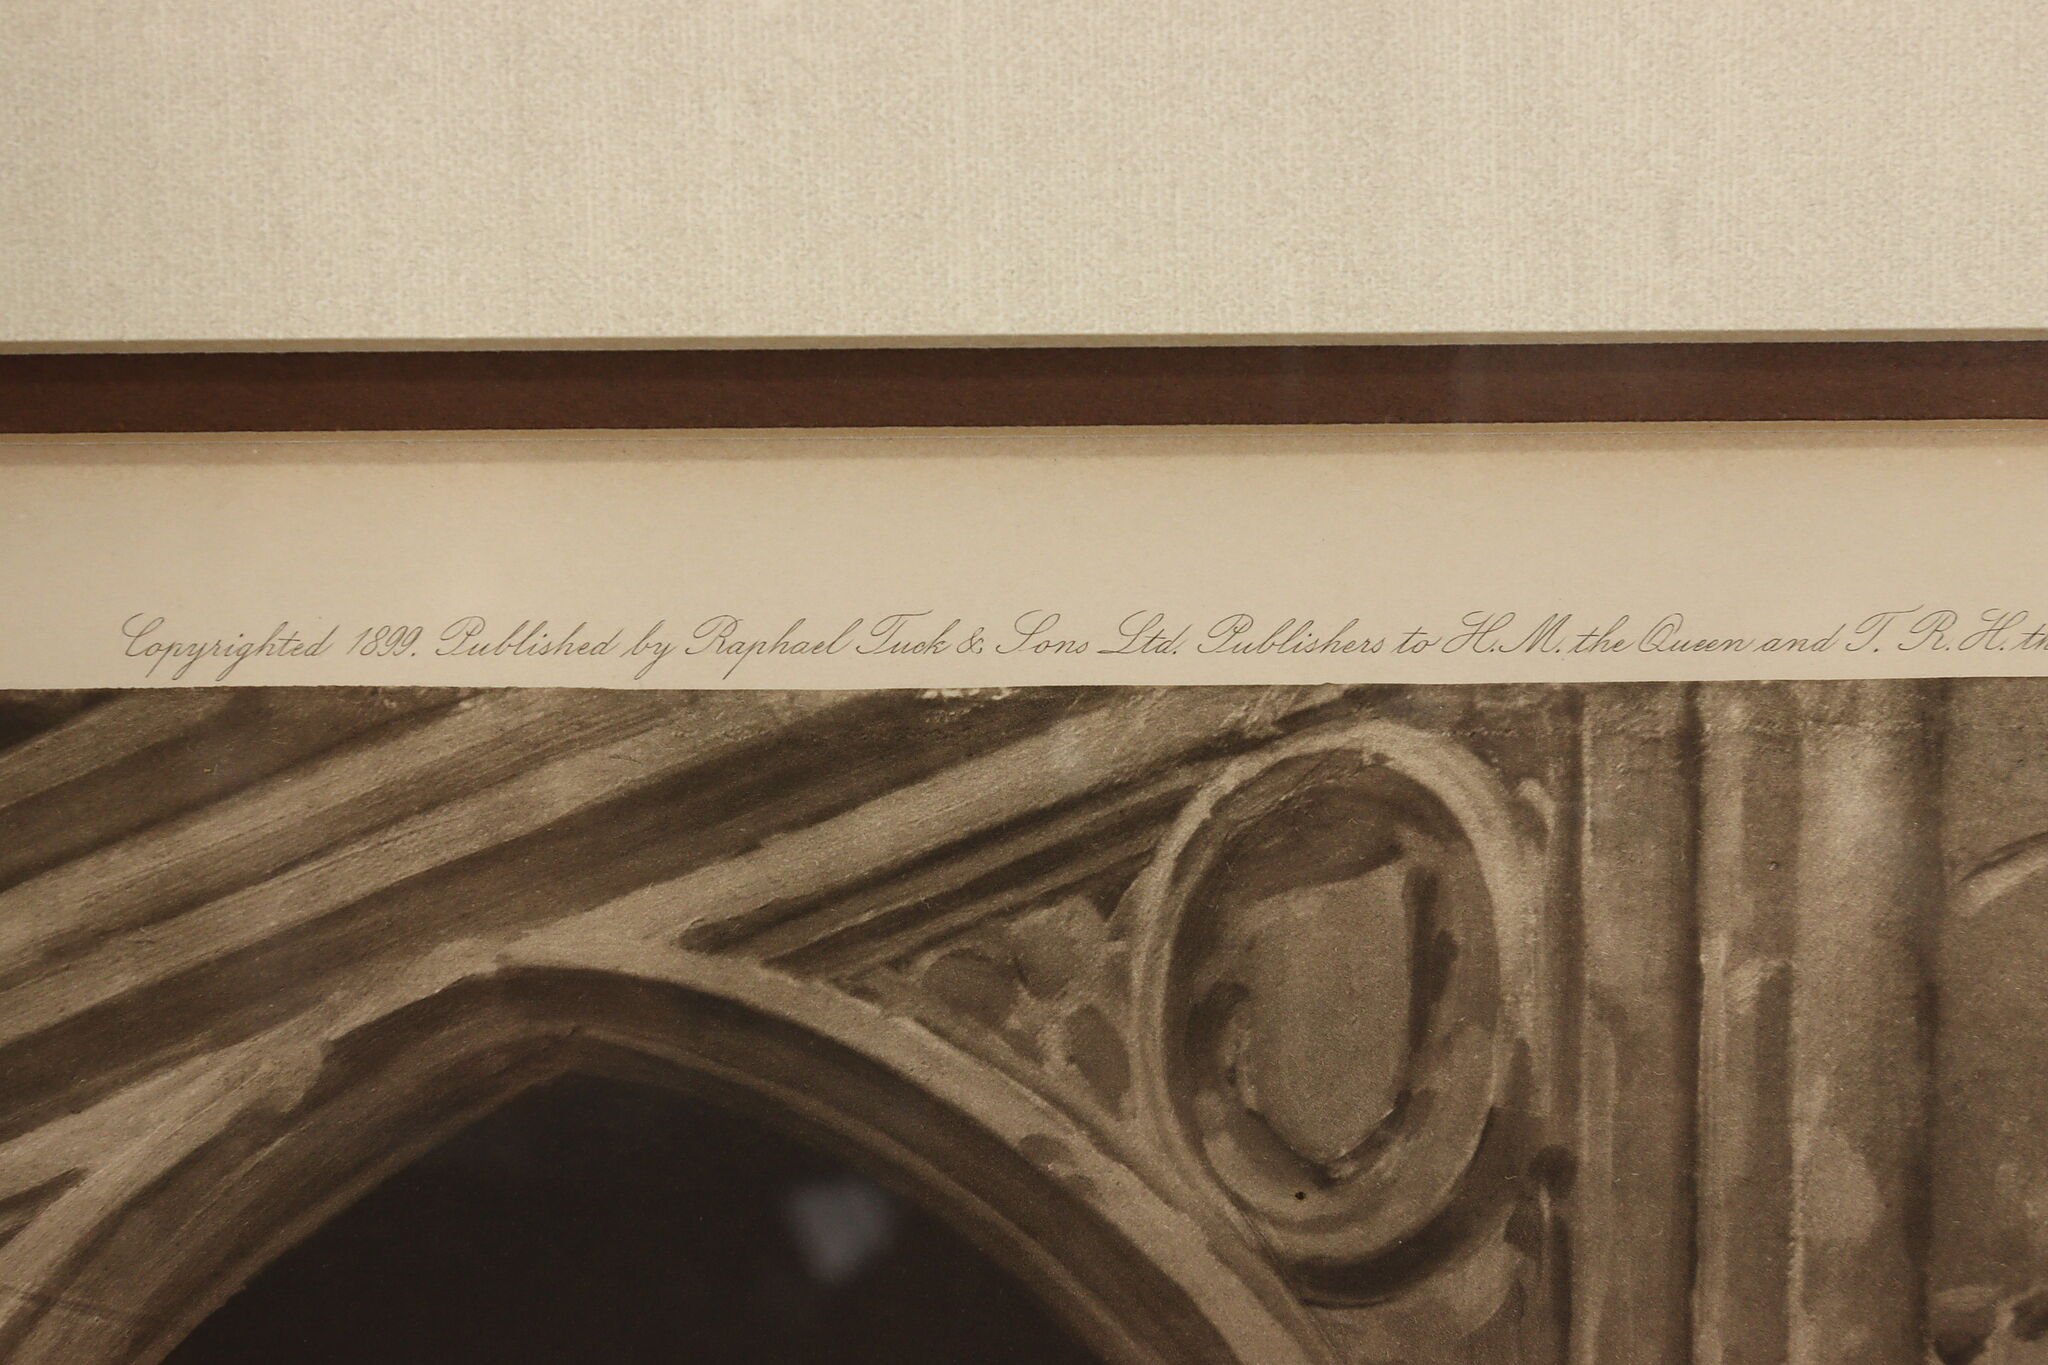 Copyrighted 1899. Published by Raphael Tuck & Sons Ltd. Publishers to H.M. the Queen and T. R. H. th